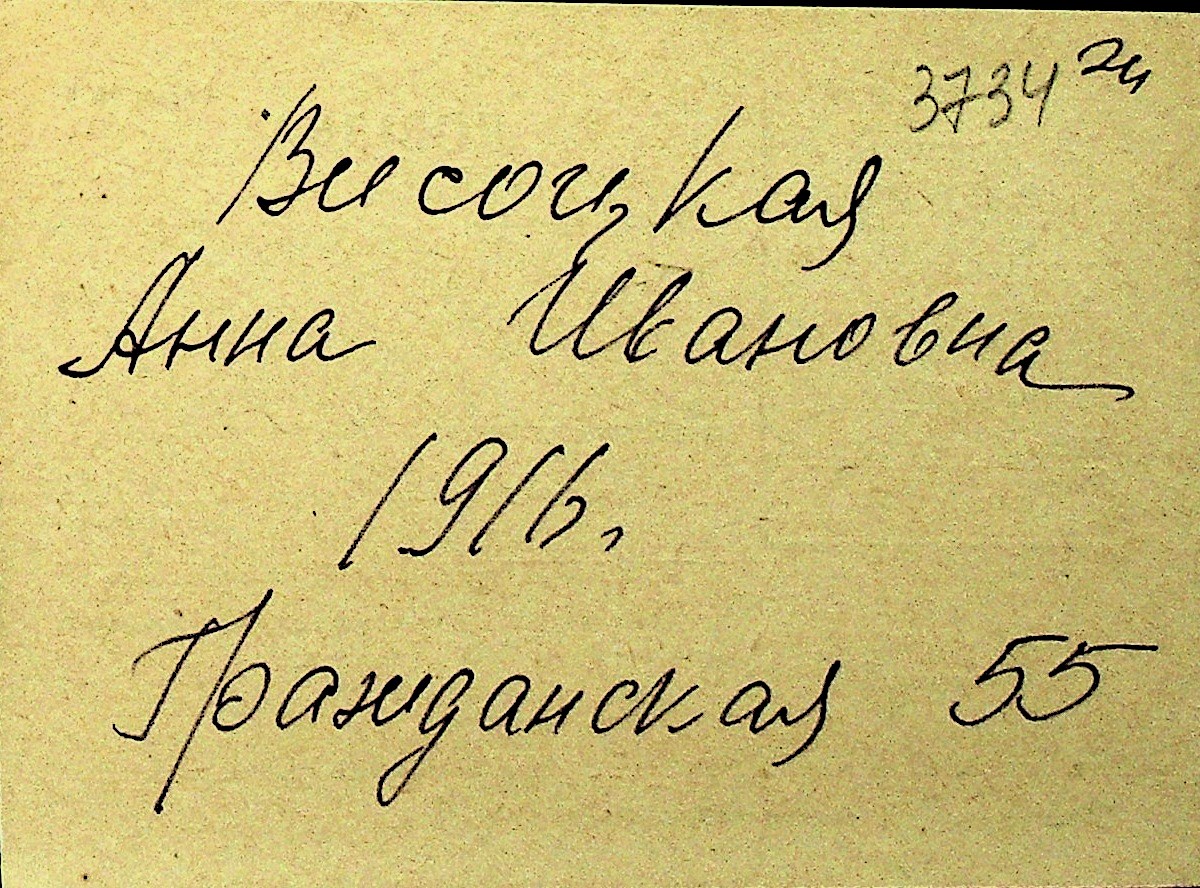 3734 24
Висоцкая
Анна Ивановна
1916г.
Гражданская 55